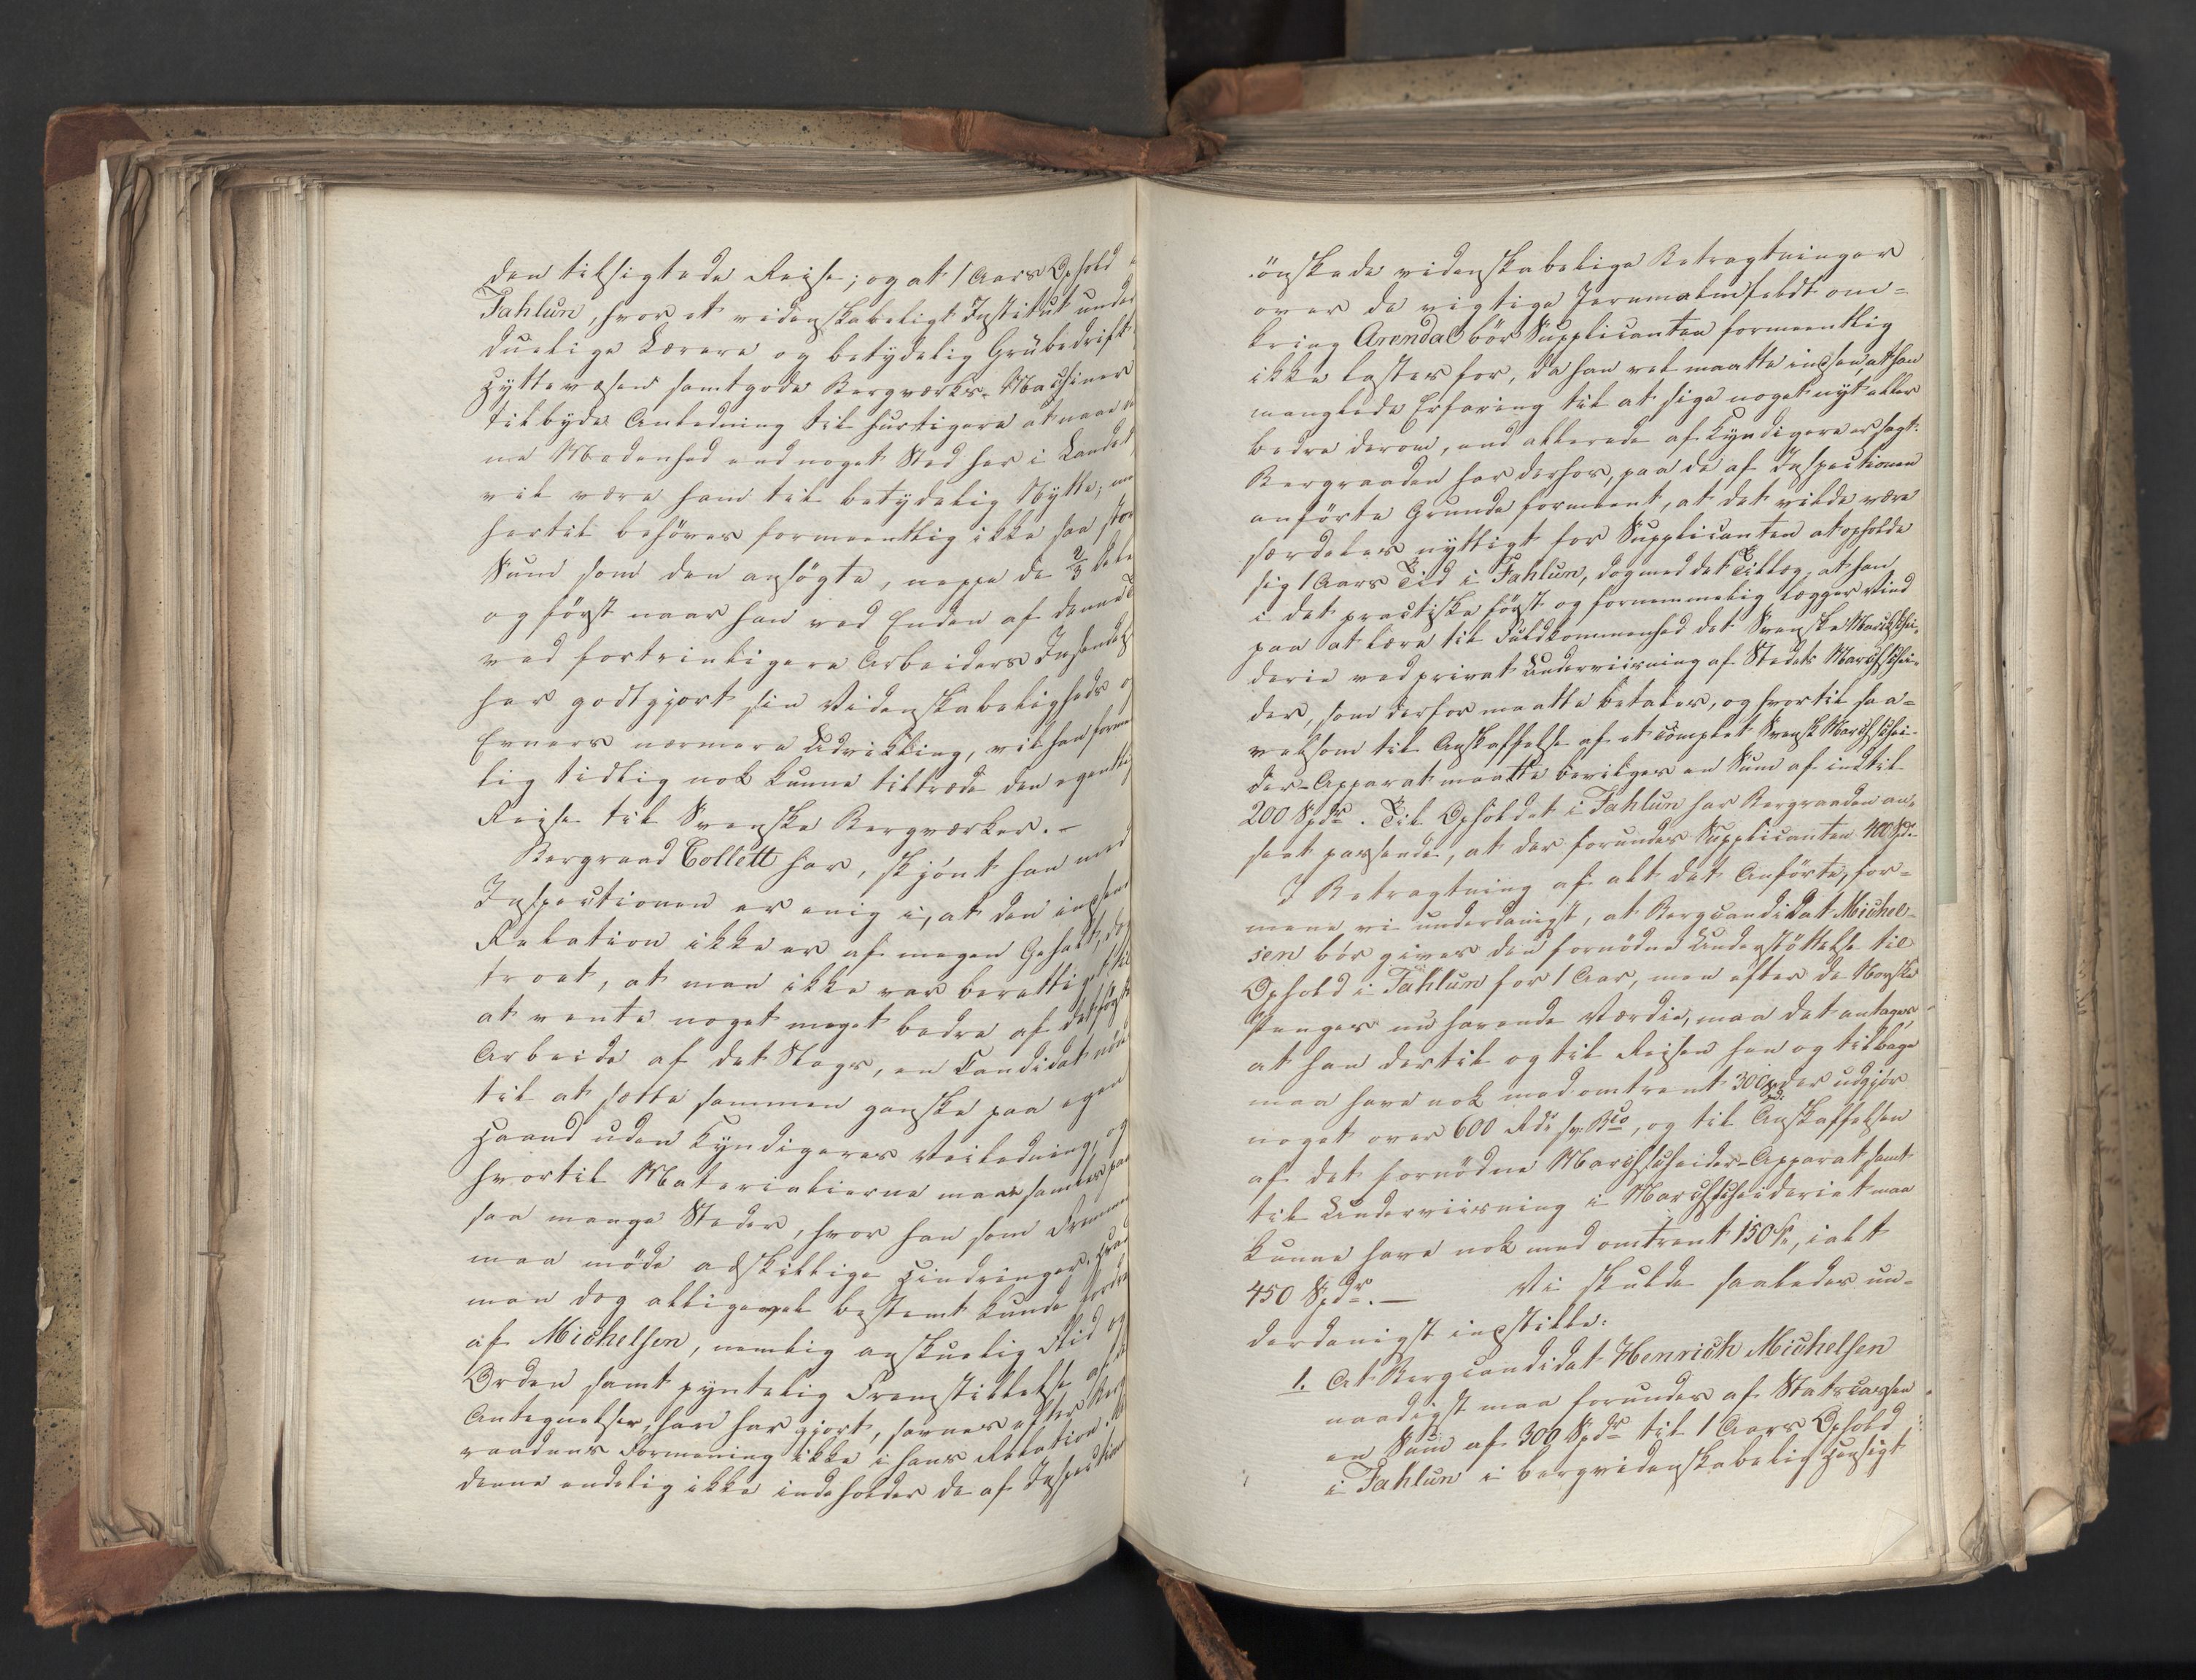 den tilsigtede Reise; og at 1 Aars Ophold
Fahlun, hvor et videnskabeligt Institut under
duelige Lærere og betydelig Grubedrift
Hyttevæsen samt gode Bergværks-Maschiner
tilbyde Anledning til hurtigere at naae
ne Modenhed end noget Sted her i Landet,
vil være ham til betydelig Nytte; me
hertil behöves formeentlig ikke saa stor
Sum som den ansögte, neppe de 2/3 dele
og först naar han ved Enden af denne
ved fortrinligere Arbeiders Indsendels
har godtgjort sin Videnskabeligheds og
Evners nærmere Udvikling, vil han forme
lig tidlig nok kunne tiltræde den egentlig
Reise til Svenske Bergværker.-
Bergraad Collett har, skjönt han med
Inspectionen er enig i, at den indsen
Relation ikke er af megen Gehalt, do
troet, at man ikke var berettiget til
at vente noget meget bedre af det förste
Arbeide af det Slags, en Candidat nöd
til at sætte sammen ganske paa egen
Haand uden Kyndigeres Veiledning, og
hvortil Materialierne maae samles paa
saa mange Steder, hvor han som Fremme
maa möde adskillige Hindringer. Hvad
man dog alligevel bestemt kunde fordre
af Michelsen, nemlig anskuelig Flid og
Orden samt pyntelig Fremstillelse af de
Antegnelser, han har gjort, savnes efter Berg
raadens Formening ikke i hans Relation
denne endelig ikke indeholder de af Inspection
önskede videnskabelige Betragtninger
over de vigtige Jernmalmfeldt om-
kring Arendal bör Supplicanten formeentlig
ikke lastes for, da han vel maatte indsee, at han
manglede Erfaring til at sige noget nyt eller
bedre derom, end allerede af Kyndigere er sagt.
Bergraaden har derhos, paa de af Inspectionen
anförte Grunde formeent, at det vilde være
særdeles nyttigt for Supplicanten at opholde
sig 1 Aars Tid i Fahlun, dog med det Tillæg, at han
i det practiske först og fornemmelig lægger Vind
paa at lære til Fuldkommenhed det Svenske Marchschei-
derie ved privat Underviisning af Stedets Marchschei-
der, som derfor maatte betales, og hvortil saa-
velsom til Anskaffelse af et complet Svensk Marchschei-
der-Apparat maatte bevilges en Sum af indtil
200 Spdr. Til Opholdet i Fahlun har Bergraaden an-
seet passende, at der forundes Supplicanten 400 Spd.
I Betragtning af alt det Anförte, for-
mene vi underdanigst, at Bergcandidat Michel-
sen bör gives den fornödne Understöttelse til
Ophold i Fahlun for 1 Aar, men efter de Norske
Penges nu havende Værdie, maa det antages,
at han dertil og til Reisen hen og tilbage
maa have nok med omtrent 300 Spd. der udgjör
noget over 600 Rdr sv. Bco, og til Anskaffelsen
af det fornödne Marchscheider-Apparat samt
til Underviisning i Marchscheideriet maa
kunne have nok med omtrent 150 Sp., ialt
450 Spdr.- Vi skulde saaledes un-
derdanigst indstille:
1. At Bergcandidat Henrich Michelsen
naadigst maa forundes af Statscassen
en Sum af 300 Spdr til 1 Aars Ophold
i Fahlun i bergvidenskabelig Hensigt